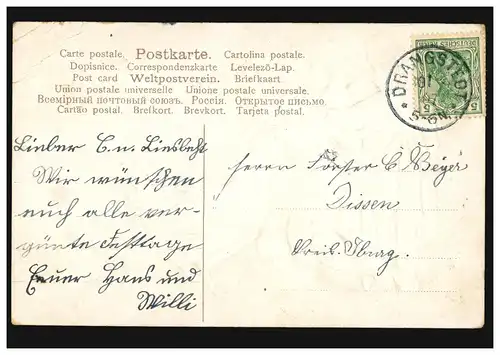 Carte postale. Postkarte. Cartolina postale.
Dopisnice. Correspondenzkarte. Levelező-Lap.
Post card Weltpostverein. Briefkaart
Union postale universelle Unione postale universale.
Всемірный почтовый союзъ. Россія. Открытое письмо.
Cartão postal. Brefkort. Brevkort. Tarjeta postal.
Lieber C. u. Liesbeht
Wir wünschen
euch alle ver-
günte Festtage
Euer Hans und
Willi
Herrn Förster C Beyer
Dissen
Kreis Iburg.
DRANGSTEDT
5-6N
DEUTSCHES REICH
5